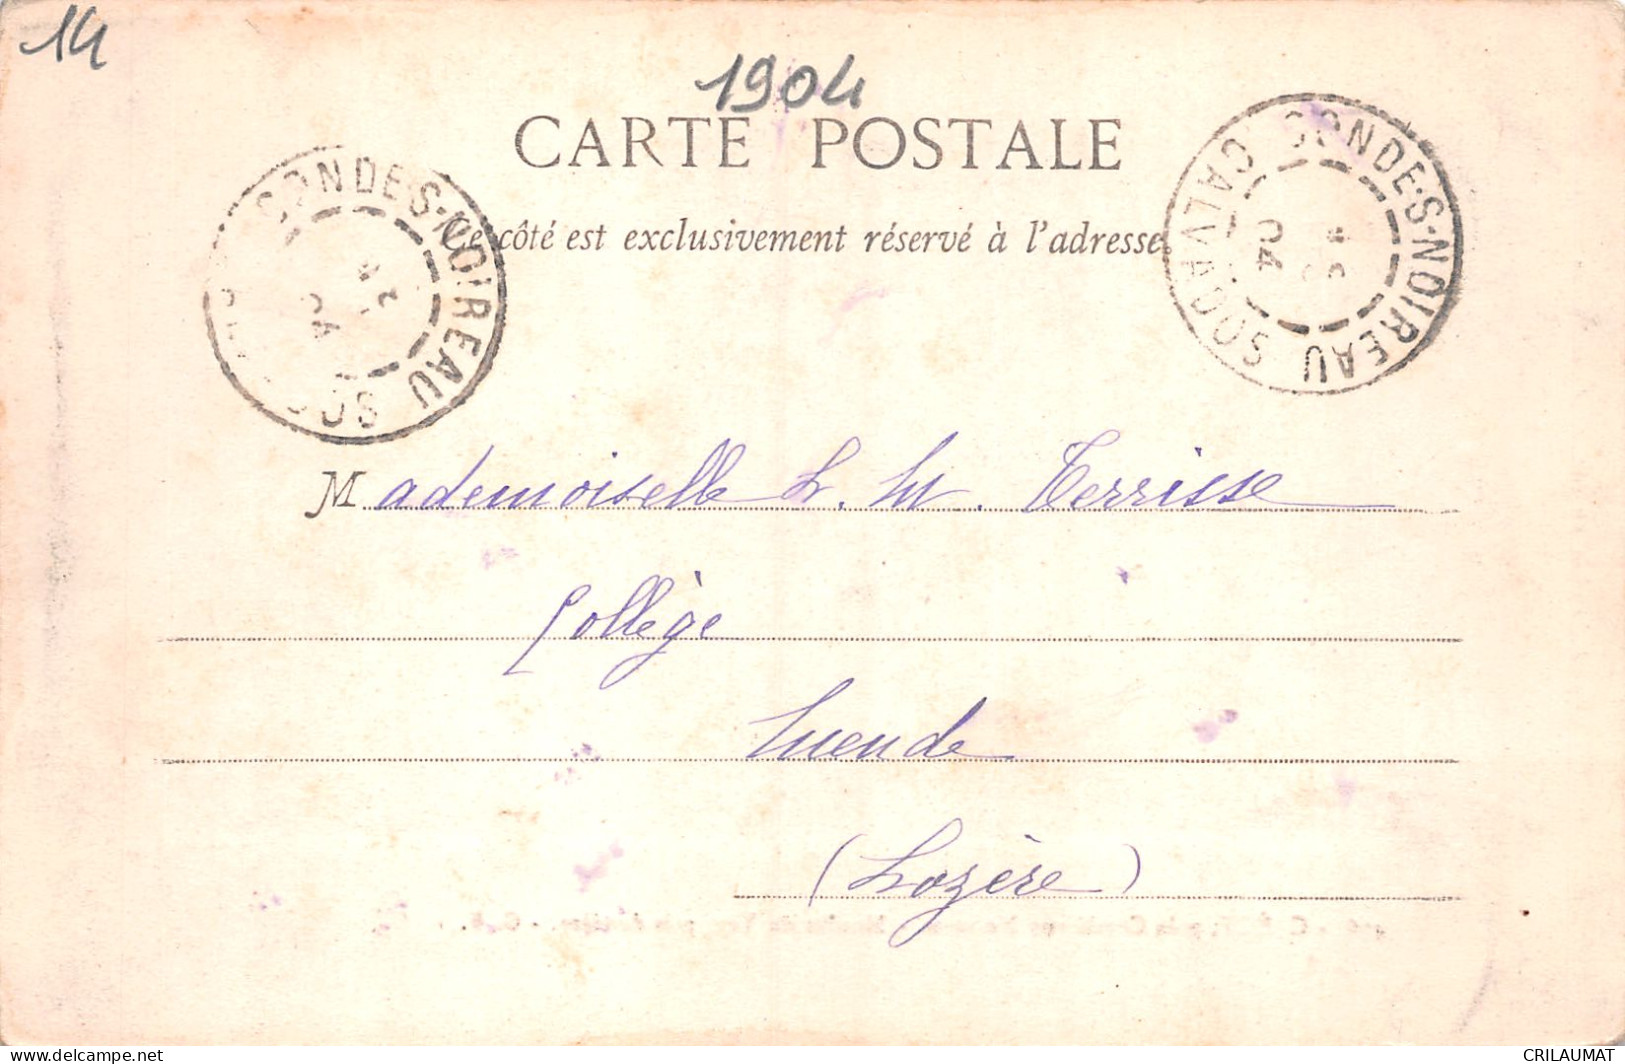 14
1904
CARTE POSTALE
Ce côté est exclusivement réservé à l'adresse
CONDE-S-NOIREAU
CONDE-S-NOIREAU CALVADOS
04
Mademoiselle L. M. Terrisse
Collège
Mende
(Lozère)
delcampe.net
CRILAUMAT